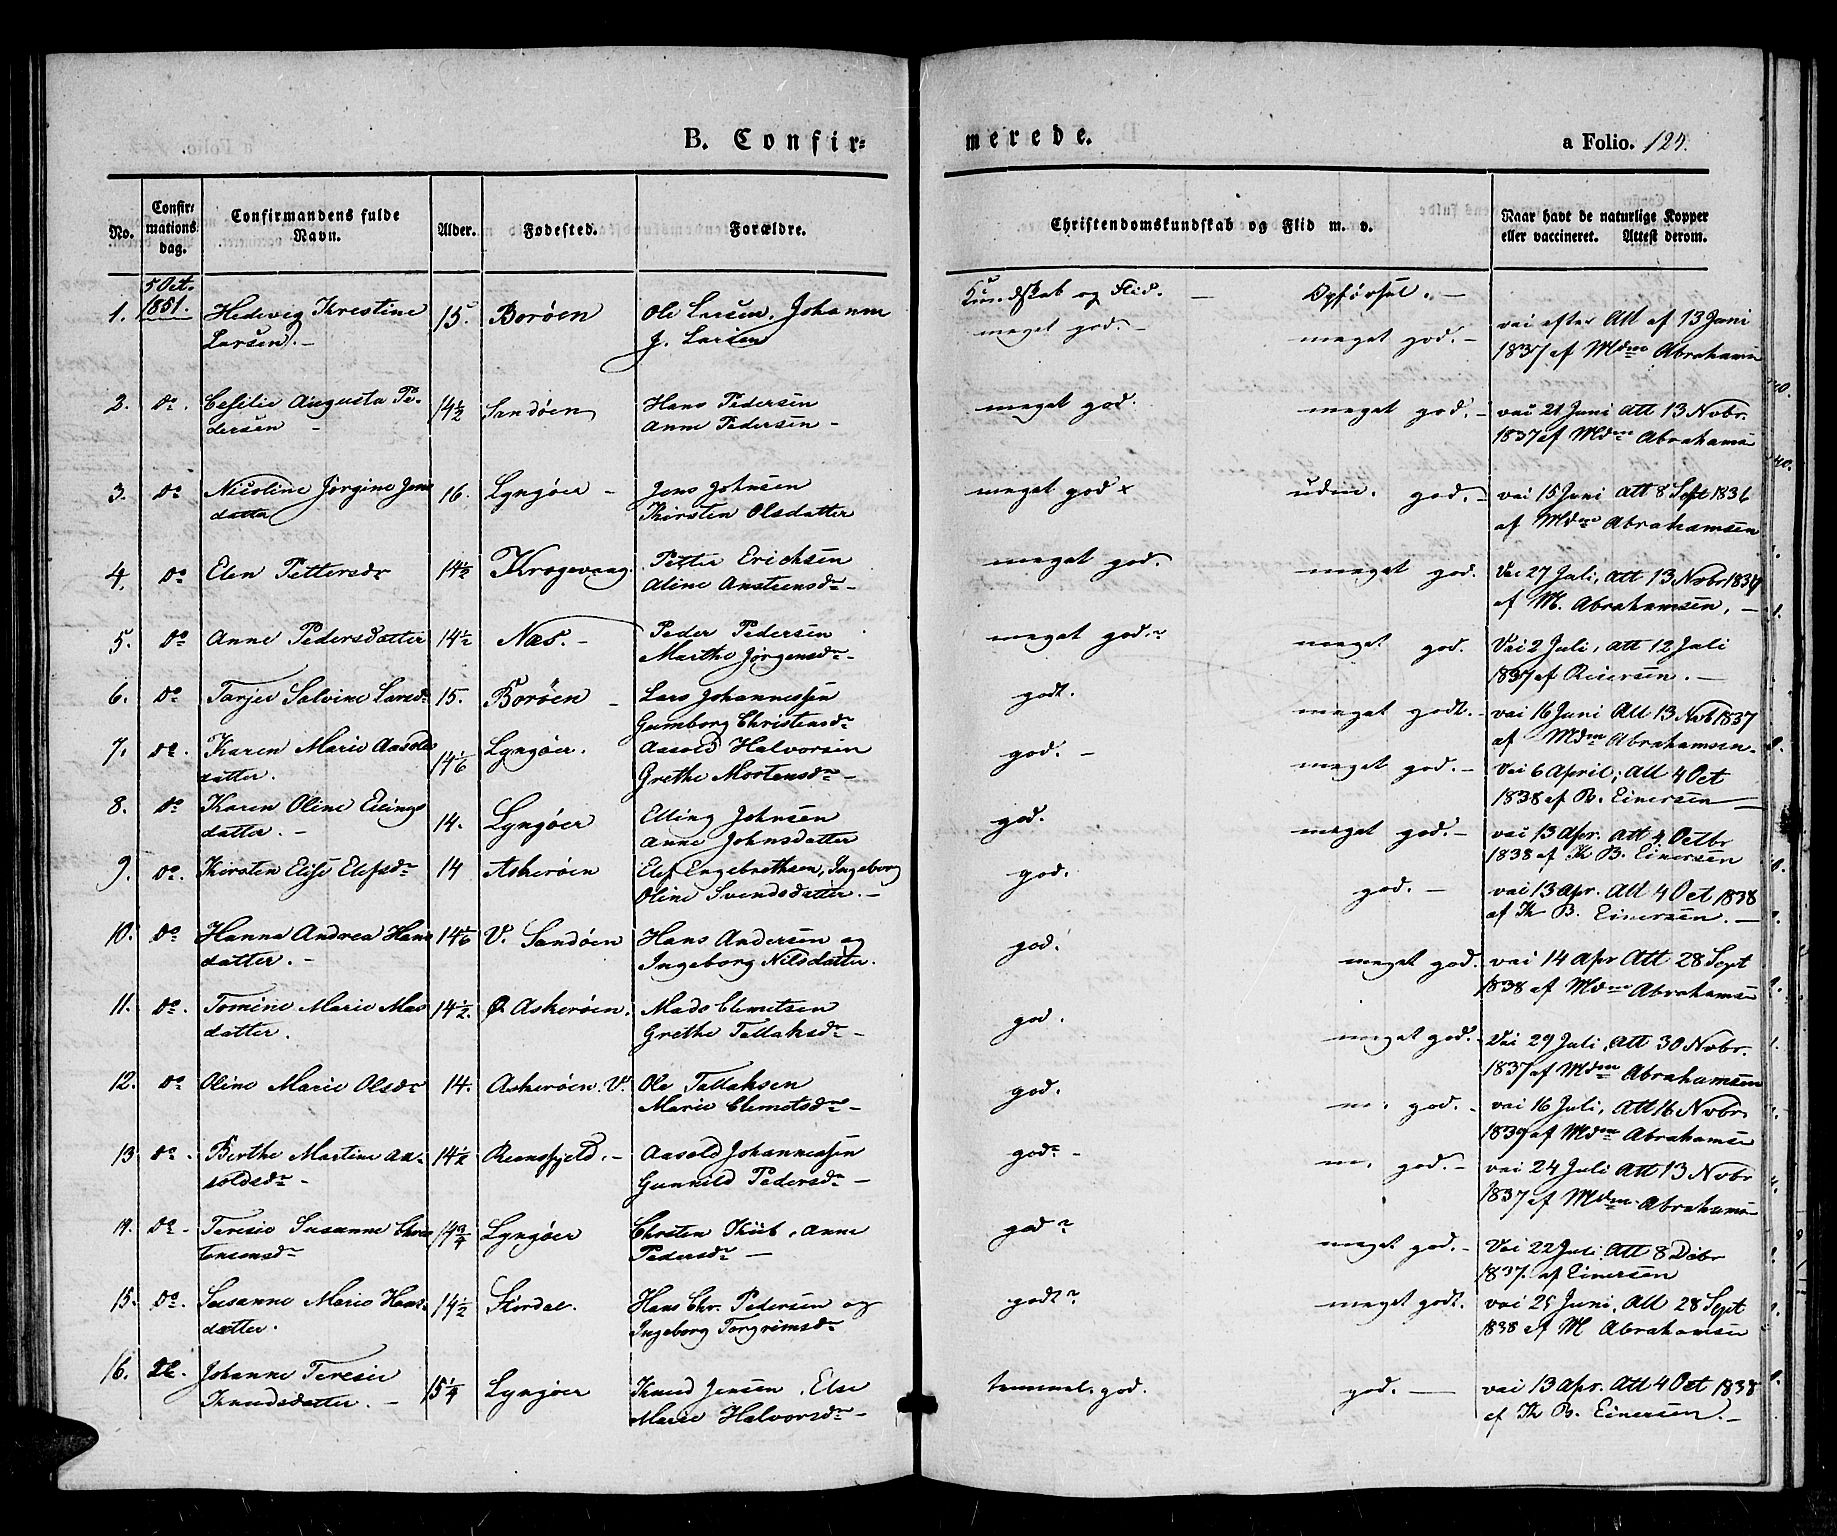 B. Confir=
merede.
a Folio. 125.
No.
Confir=
mations
dag.
Confirmandens fulde
Navn.
Alder.
Fødested.
Forældre.
Christendomskundskab og Flid m. v.
Naar havt de naturlige Kopper
eller vaccineret. Attest derom.
5 Oct.
1. 1851. Hedevig Kirestine 15. Borøen Ole Larsen, Johanne
Larsen. – J. Larsen
Kundskab og Flid. – Opførsel. –
meget god. – meget god. – vai efter Att af 13 Juni
1837 af Mdm Abrahamsen
2. do. Cesilie Augusta Pe- 14½ Sandøen Hans Pedersen
dersen – Anne Pedersen –
meget god. meget god. – vai 21 Juni Att 13 Novbr.
1837 af Mdm Abrahamsen
3. do Nicoline Jørgine Jens 16. Lyngøer – Jens Johnsen
datter Kirsten Olsdatter
meget god x udm. god. – vai 15 Juni Att 8 Sept 1836
af Mdm Abrahamsen
4. do Elen Pettersdr 14½ Krogevaag Petter Erichsen
Aline Anstensdr –
meget god. meget god. Vai 27 Juli, Att 13 Novbr 1837
af M. Abrahamsen. –
5. do Anne Pedersdatter 14½ Næs. – Peder Pedersen
Marthe Jørgensdr –
meget god. meget god. Vai 2 Juli, Att 12 Juli
1837 af Reiersen. –
6. do Tarjer Salvine Larsdr 15. Borøen – Lars Johannessen
Gumborg Christensdr
godt. meget godt. – vai 16 Juni Att 13 Nov 1837
af Mdm Abrahamsen –
7. do. Karen Marie Aasolds 14 1/6 Lyngøer. Aasold Halvorsen
datter. Grethe Mortensdr –
god. – meget god. – Vai 6 April; Att 4 Oct
1838 af B. Einersen –
8. do Karen Oline Ellings 14. Lyngøer Elling Johnsen
datter. – Anne Johnsdatter
god. meget god. – vai 13 Apr. Att 4 Octbr
1838 af Th B. Einersen
9. do. Kirsten Elise Elefsdr 14 Askerøen Elef Engebrethsen, Ingeborg
Oline Svendsdatter. –
god. god. – vai 13 Apr. Att 4 Oct 1838
af Th B. Einersen. –
10. do Hanna Andrea Hans 14 1/6 V. Sandøen Hans Andersen og
datter. – Ingeborg Nilsdatter.
god. meget god. vai 14 Apr Att 28 Sept
1838 af Mdm Abrahamsen
11. do. Tomine Marie Mas 14½. Ø. Askerøen. Mads Clemetsen
datter. Grethe Tellaksdr –
god. meget god. – Vai 29 Juli, Att 30 Novbr.
1837 af Mdm Abrahamsen
12. do Oline Marie Olsdr 14. Askerøen. V. Ole Tallaksen
Marie Clemetsdr –
god. m. god. – vai 16 Juli, Att 16 Novbr
1839 af Mdm Abrahamsen
13 do – Berthe Martine Aa- 14½ Reensfjeld. – Aasold Johannessen
soldsdr – Gunnild Pedersdr –
god. – m. god. – vai 24 Juli Att 13 Novbr
1837 af Mdm Abrahamsen
14. do – Teresie Susanne Chris 14¾ Lyngøer Christen Kiib, Anne
tensensdr Pedersdr –
god meget god. – Vai 22 Juli Att 8 Debr
1837. af Einersen
15. do. Susanne Marie Hans- 14½ Stordal. Hans Chr. Pedersen og
datter. Ingeborg Torgrimsdr
godt meget godt. vai 25 Juni, Att 28 Sept
1838 af M Abrahamsen
16. do. Johanne Teresie 15¼ Lyngøer Knud Jensen, Else
Knudsdatter. – Marie Halvorsdr –
temmel. god. god. – vai 13 Apr. Att 4 Oct 1838
af Th B. Einersen. –